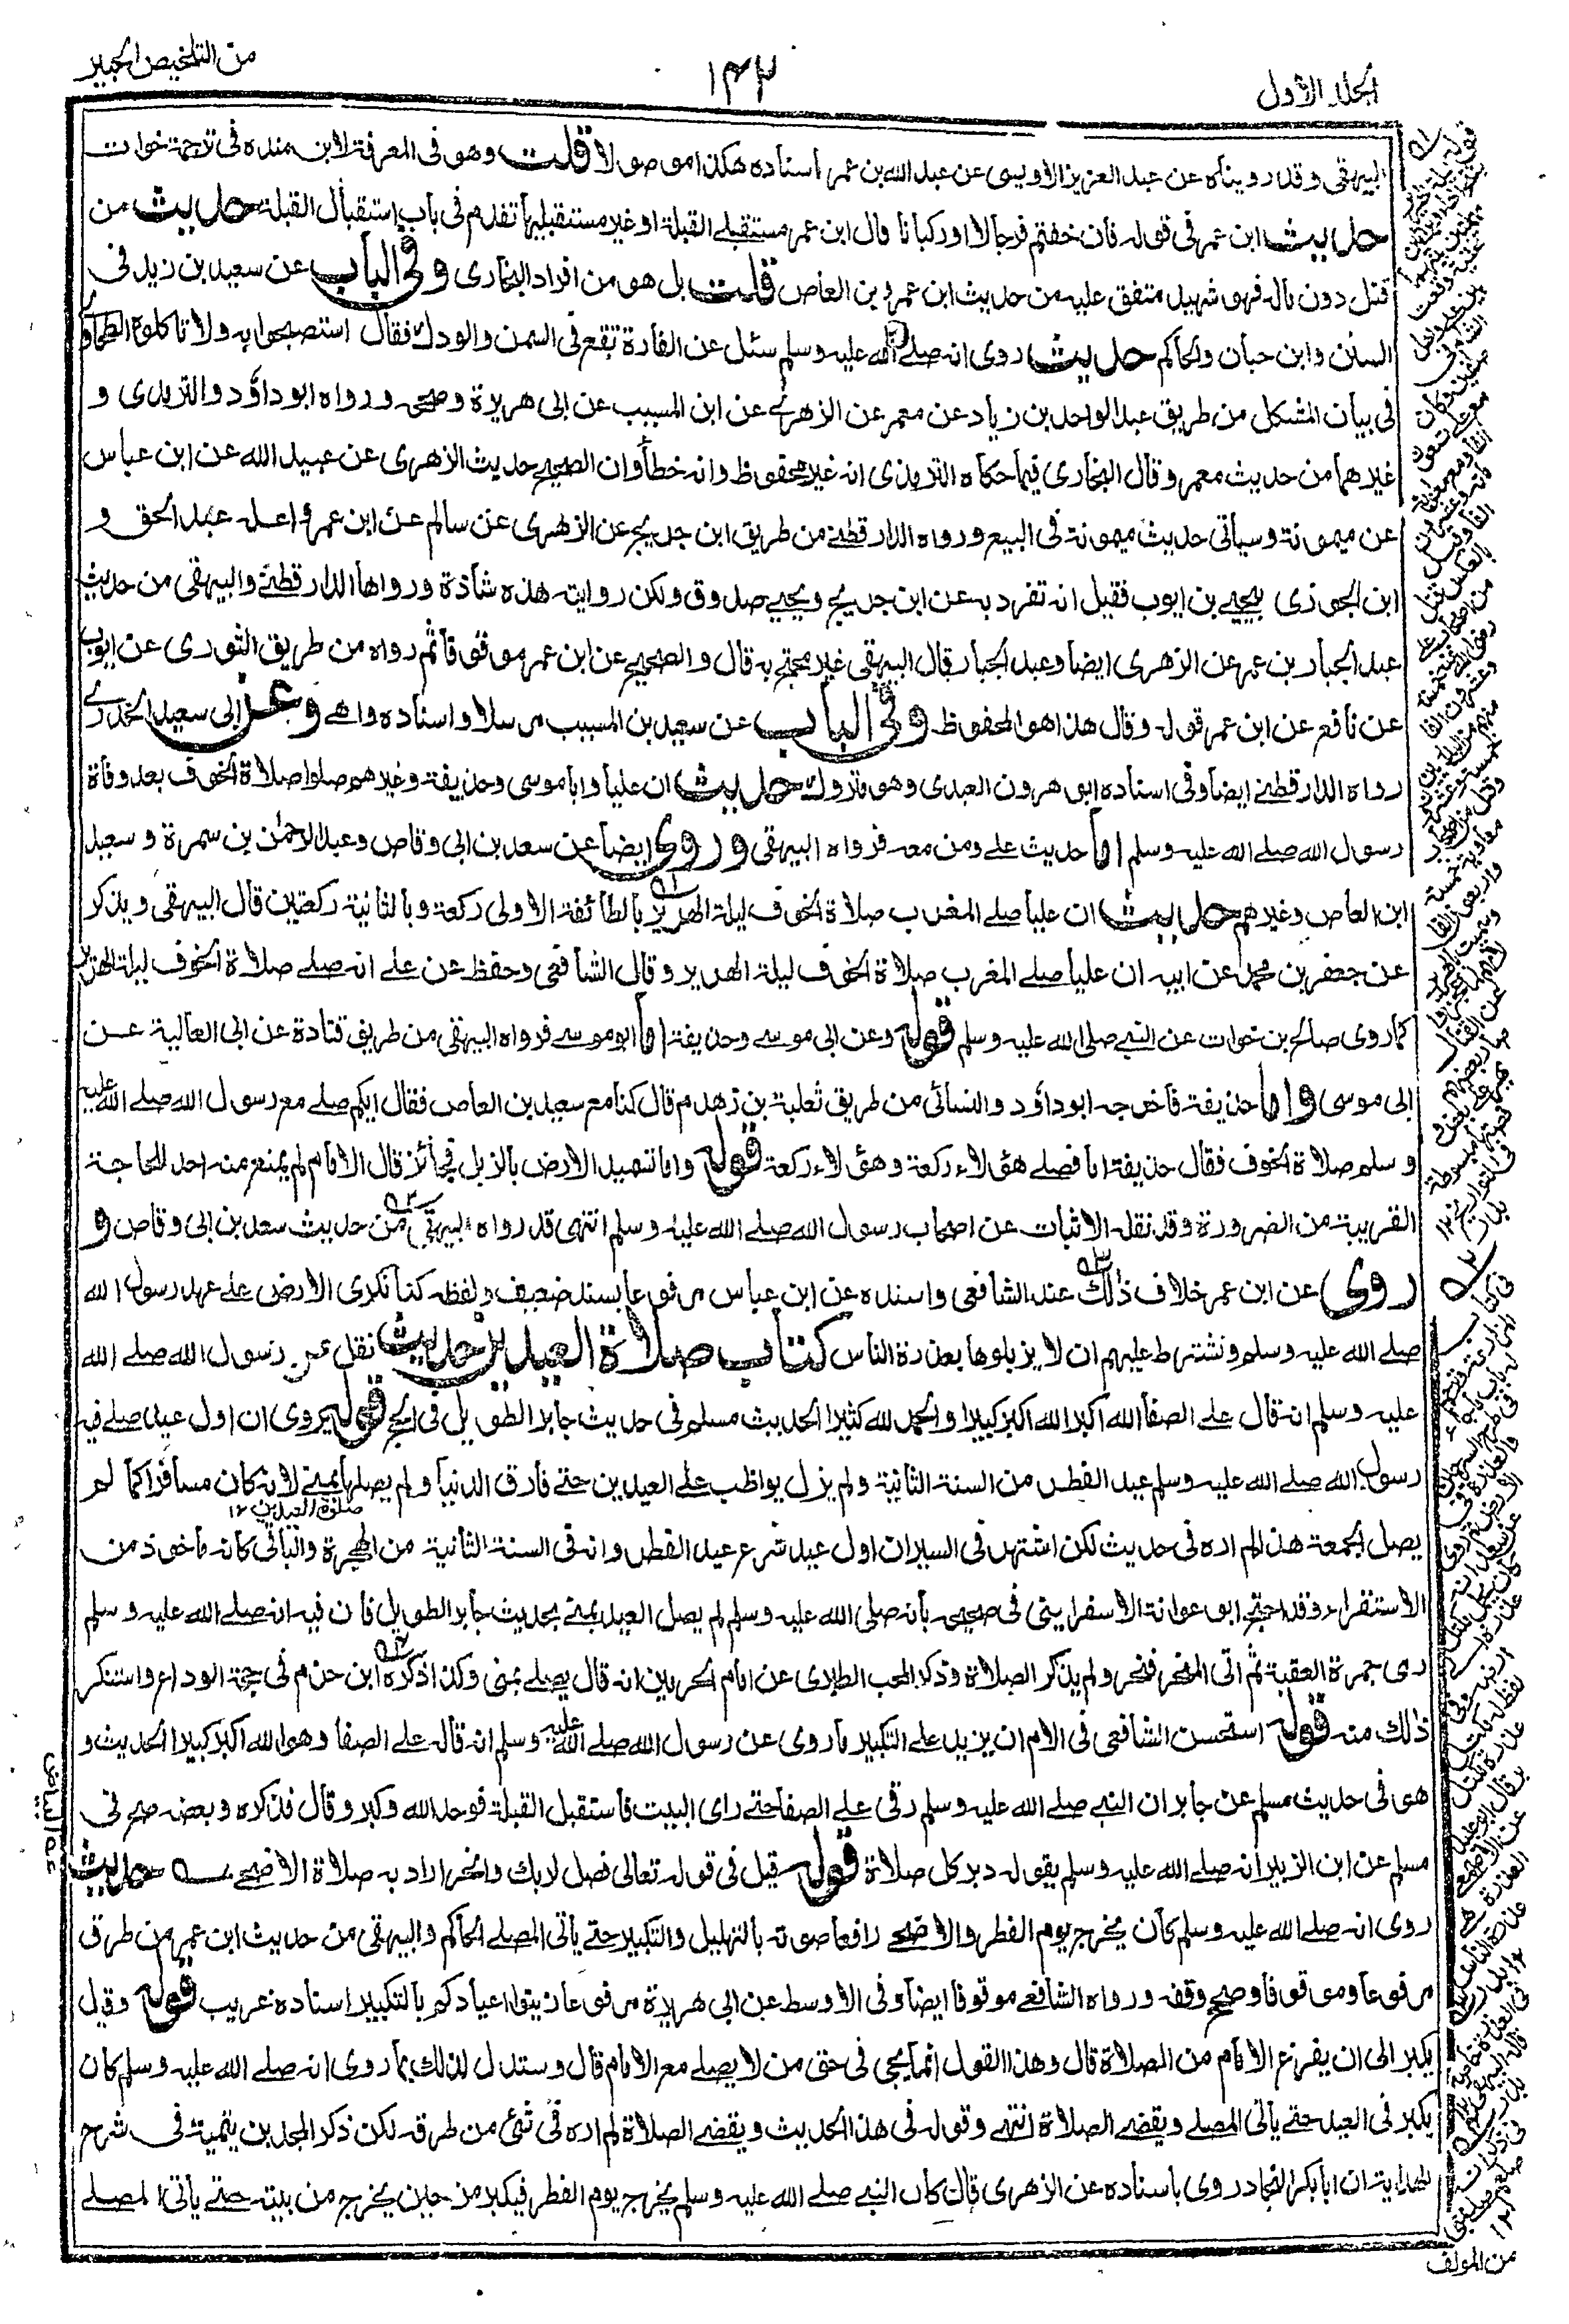 الجلد الاول
١٤٣
من التلخيص الحبير
البيهقى وقد رويناه عن عبد العزيز الاويسى عن عبد الله بن عمر اسناده هكذا موصولا قلت وهو فى المعرفة لابن منده فى ترجمة خوات
حديث ابن عمر فى قوله فان خفتم فرجالا او ركبانا قال ابن عمر مستقبلے القبلة او غير مستقبليها تقدم فى باب استقبال القبلة حديث من
قتل دون ماله فهو شهيد متفق عليه من حديث ابن عمرو بن العاص قلت بل هو من افراد البخارى وفى الباب عن سعيد بن زيد فى
السنن وابن حبان والحاكم حديث روى انه صلے الله عليه وسلم سئل عن الفأرة تقع فى السمن والودك فقال استصبحوا به ولا تأكلوه الطحاوى
فى بيان المشكل من طريق عبد الواحد بن زياد عن معمر عن الزهرى عن ابن المسيب عن ابى هريرة وصححه ورواه ابو داؤد والترمذى و
غيرهما من حديث معمر وقال البخارى فيما حكاه الترمذى انه غير محفوظ وانه خطأ وان الصحيح حديث الزهرى عن عبيد الله عن ابن عباس
عن ميمونة وسيأتى حديث ميمونة فى البيع ورواه الدارقطنے من طريق ابن جريج عن الزهرى عن سالم عن ابن عمر واعله عبد الحق و
ابن الجوزى بيحيے بن ايوب فقيل انه تفرد به عن ابن جريج ويحيے صدوق ولكن روايته هذه شاذة ورواها الدارقطنے والبيهقى من حديث
عبد الجبار بن عمر عن الزهرى ايضا وعبد الجبار قال البيهقى غير محتج به قال والصحيح عن ابن عمر موقوفا ثم رواه من طريق الثورى عن ايوب
عن نافع عن ابن عمر قوله وقال هذا هو المحفوظ وفى الباب عن سعيد بن المسيب مرسلا واسناده واهے وعن ابى سعيد الخدرے
رواه الدارقطنے ايضا وفى اسناده ابو هرون العبدى وهو متروك حديث ان عليا وابا موسى وحذيفة وغيرهم صلوا صلاة الخوف بعد وفاة
رسول الله صلے الله عليه وسلم اما حديث علے ومن معه فرواه البيهقى وروى ايضا عن سعد بن ابى وقاص وعبد الرحمٰن بن سمرة وسعيد
ابن العاص وغيرهم حديث ان عليا صلے المغرب صلاة الخوف ليلة الهرير بالطائفة الاولى ركعة وبالثانية ركعتين قال البيهقى ويذكر
عن جعفر بن محمد عن ابيه ان عليا صلے المغرب صلاة الخوف ليلة الهرير وقال الشافعى وحفظ عن علے انه صلے صلاة الخوف ليلة الهرير
كما روى صالح بن خوات عن النبے صلى الله عليه وسلم قوله وعن ابى موسے وحذيفة اما ابو موسے فرواه البيهقى من طريق قتادة عن ابى العالية عن
ابى موسى واما حذيفة فاخرجه ابو داؤد والنسائى من طريق ثعلبة بن زهدم قال كنا مع سعيد بن العاص فقال ايكم صلے مع رسول الله صلے الله عليه
وسلم صلاة الخوف فقال حذيفة انا فصلے هؤلاء ركعة وهؤلاء ركعة قوله واما تسميد الارض بالزبل فجائز قال الامام لم يمنع منه احد للحاجة
القريبة من الضرورة وقد نقله الاثبات عن اصحاب رسول الله صلے الله عليه وسلم انتهى قد رواه البيهقى من حديث سعد بن ابى وقاص و
روى عن ابن عمر خلاف ذلك عند الشافعى واسنده عن ابن عباس مرفوعا بسند ضعيف ولفظه كنا نكرى الارض علے عهد رسول الله
صلے الله عليه وسلم ونشترط عليهم ان لا يزبلوها بعذرة الناس كتاب صلاة العيدين حديث نقل عن رسول الله صلے الله
عليه وسلم انه قال علے الصفا الله اكبر الله اكبر كبيرا والحمد لله كثيرا الحديث مسلم فى حديث جابر الطويل فى الحج قوله يروى ان اول عيد صلے فيه
رسول الله صلے الله عليه وسلم عيد الفطر من السنة الثانية ولم يزل يواظب علے العيدين حتے فارق الدنيا ولم يصلها بمنے لانه كان مسافرا كما لم
صلوة العيدين ١٢
يصل الجمعة هذا لم اره فى حديث لكن اشتهر فى السير ان اول عيد شرع عيد الفطر وانه فى السنة الثانية من الهجرة والباقى كانه مأخوذ من
الاستقراء وقد احتج ابو عوانة الاسفراينى فى صحيحه بانه صلى الله عليه وسلم لم يصل العيد بمنے بحديث جابر الطويل فان فيه انه صلے الله عليه وسلم
رمى جمرة العقبة ثم اتى المنحر فنحر ولم يذكر الصلاة وذكر المحب الطبرى عن امام الحرمين انه قال يصلے بمنى وكذا ذكره ابن حزم فى حجة الوداع واستنكر
ذلك منه قوله استحسن الشافعى فى الام ان يزيد علے التكبير ما روى عن رسول الله صلے الله عليه وسلم انه قاله علے الصفا وهو الله اكبر كبيرا الحديث و
هو فى حديث مسلم عن جابر ان النبے صلے الله عليه وسلم رقى علے الصفا حتے راى البيت فاستقبل القبلة فوحد الله وكبر وقال فذكره وبعضه صح فى
مسلم عن ابن الزبير انه صلے الله عليه وسلم يقوله دبر كل صلاة قوله قيل فى قوله تعالى فصل لربك وانحر اراد به صلاة الاضحے حديث
روى انه صلے الله عليه وسلم كان يخرج يوم الفطر والاضحے رافعا صوته بالتهليل والتكبير حتے يأتى المصلے الحاكم والبيهقى من حديث ابن عمر من طرق
مرفوعا وموقوفا وصحح وقفه ورواه الشافعے موقوفا ايضا وفى الاوسط عن ابى هريرة مرفوعا زينوا اعيادكم بالتكبير اسناده غريب قوله وقيل
يكبر الى ان يفرغ الامام من الصلاة قال وهذا القول انما يجى فى حق من لا يصلے مع الامام قال وستدل لذلك بما روى انه صلے الله عليه وسلم كان
يكبر فى العيد حتے يأتى المصلے ويقضے الصلاة انتهے وقوله فى هذا الحديث ويقضے الصلاة لم اره فى شئ من طرقه لكن ذكر المجد بن تيمية فى شرح
الهداية ان ابا بكر النجاد روى باسناده عن الزهرى قال كان النبے صلے الله عليه وسلم يخرج يوم الفطر فيكبر من حين يخرج من بيته حتے يأتى المصلے
من المولف